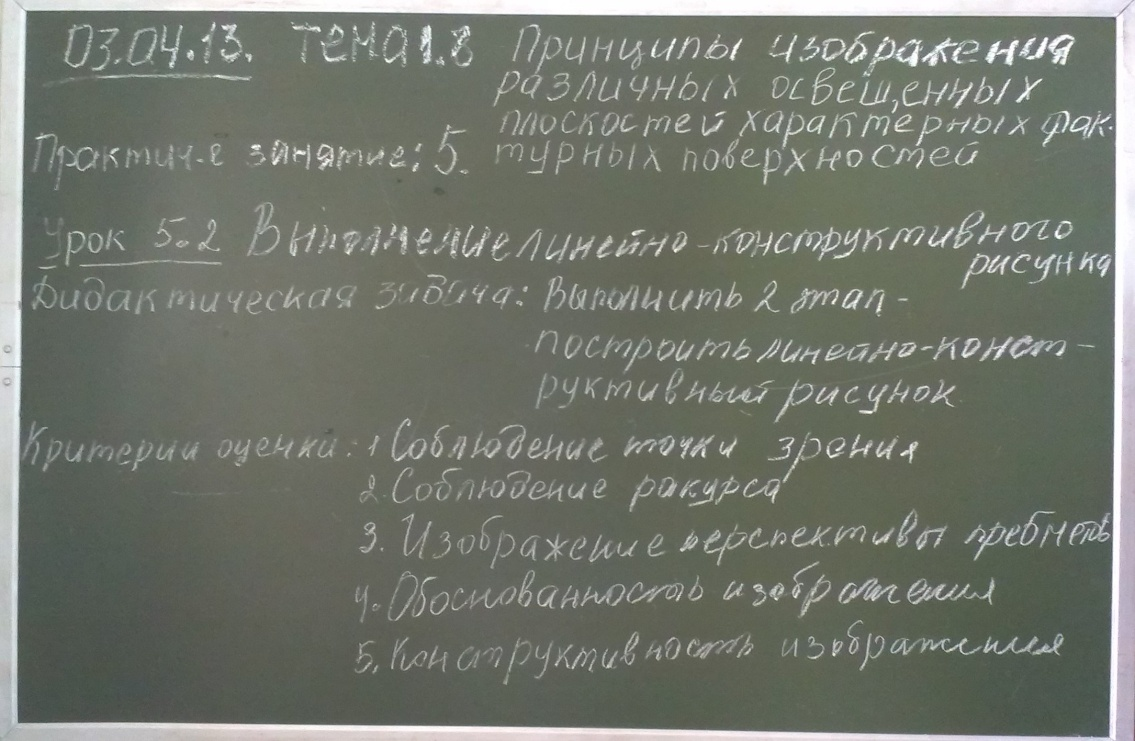 03.04.13. Тема 1.8 Принципы изображения
различных освещенных
плоскостей характерных фак-
Практич-е занятие: 5. турных поверхностей
Урок 5.2 Выполнение линейно-конструктивного
рисунка
Дидактическая задача: Выполнить 2 этап -
построить линейно-конст-
руктивный рисунок
Критерии оценки: 1 Соблюдение точки зрения
2. Соблюдение ракурса
3. Изображение перспективы
4. Обоснованность изображения
5. Конструктивность изображения